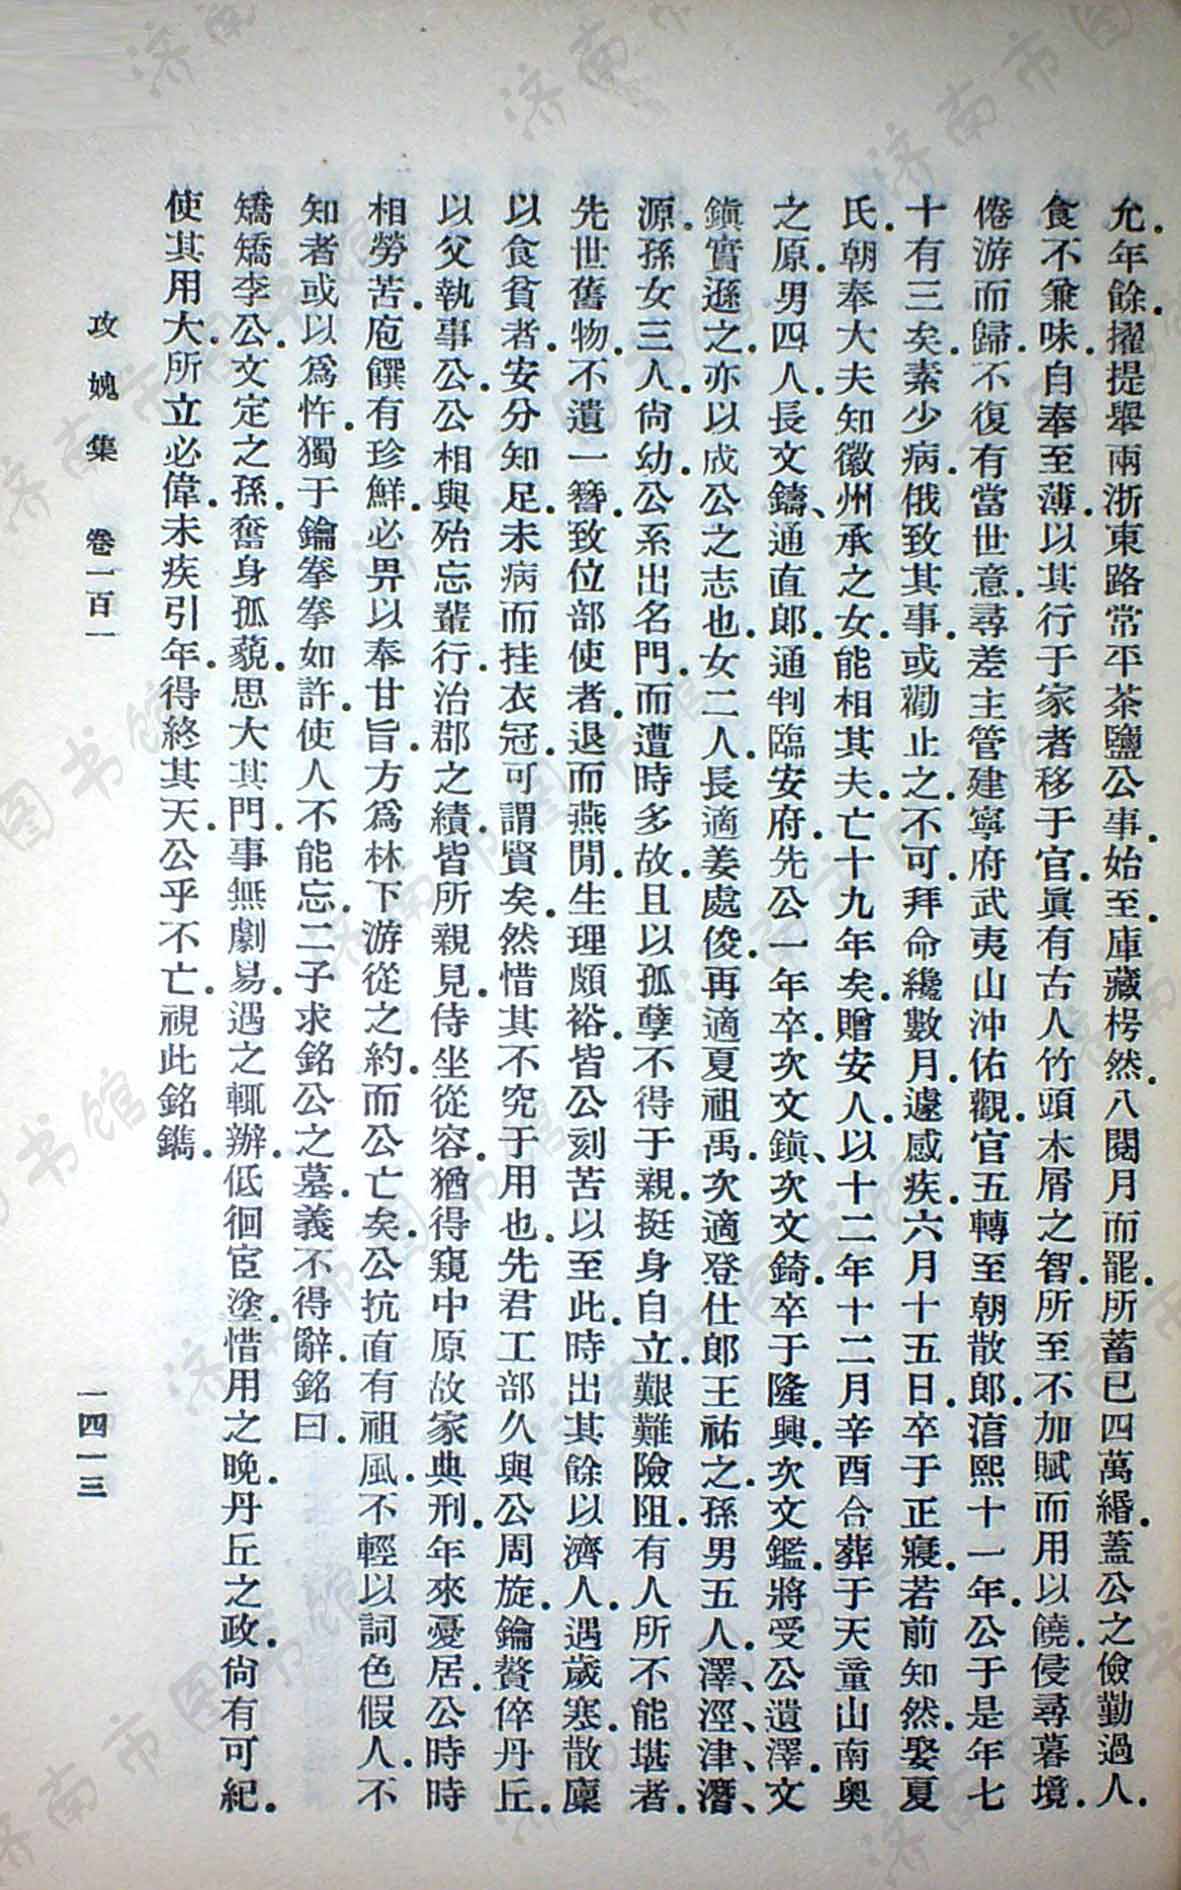 允．年餘．擢提舉兩浙東路常平茶鹽公事．始至．庫藏枵然．八閱月而罷．所蓄已四萬緡．蓋公之儉勤過人．
食不兼味．自奉至薄．以其行于家者移于官．眞有古人竹頭木屑之智．所至不加賦而用以饒．侵尋暮境．
倦游而歸．不復有當世意．尋差主管建寧府武夷山沖佑觀．官五轉至朝散郎．淳熙十一年．公于是年七
十有三矣．素少病．俄致其事．或勸止之．不可．拜命纔數月．遽感疾．六月十五日．卒于正寢．若前知然．娶夏
氏．朝奉大夫知徽州承之女．能相其夫．亡十九年矣．贈安人．以十二年十二月辛酉合葬于天童山南奥
之原．男四人．長文鑄、通直郎．通判臨安府．先公一年卒．次文鎭、次文錡．卒于隆興．次文鑑．將受公遺澤．文
鎭實遜之．亦以成公之志也．女二人．長適姜處俊．再適夏祖禹．次適登仕郎王祐之．孫男五人．澤、涇、津、潛、
源．孫女三人．尙幼．公系出名門．而遭時多故．且以孤孽不得于親．挺身自立．艱難險阻．有人所不能堪者．
先世舊物．不遺一簪．致位部使者．退而燕閒．生理頗裕．皆公刻苦以至此．時出其餘以濟人．遇歲寒．散廩
以食貧者．安分知足．未病而挂衣冠．可謂賢矣．然惜其不究于用也．先君工部久與公周旋．鑰贅倅丹丘．
以父執事公．公相與殆忘輩行．治郡之績．皆所親見．侍坐從容．猶得窺中原故家典刑．年來憂居．公時時
相勞苦．庖饌有珍鮮．必畀以奉甘旨．方爲林下游從之約．而公亡矣．公抗直有祖風．不輕以詞色假人．不
知者或以爲忤．獨于鑰拳拳如許．使人不能忘．二子求銘公之墓．義不得辭．銘曰．
矯矯李公．文定之孫．奮身孤藐．思大其門．事無劇易．遇之輒辦．低徊宦塗．惜用之晚．丹丘之政．尙有可紀．
使其用大．所立必偉．未疾引年．得終其天．公乎不亡．視此銘鐫．
攻媿集　卷一百一
一四一三
济南市图书馆